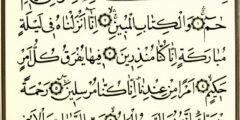 حمٓ ۝ وَالْكِتَابِ الْمُبِينِ ۝ إِنَّا أَنْزَلْنَاهُ فِي لَيْلَةٍ
مُبَارَكَةٍ إِنَّا كُنَّا مُنْذِرِينَ ۝ فِيهَا يُفْرَقُ كُلُّ أَمْرٍ
حَكِيمٍ ۝ أَمْرًا مِنْ عِنْدِنَا إِنَّا كُنَّا مُرْسِلِينَ ۝ رَحْمَةً